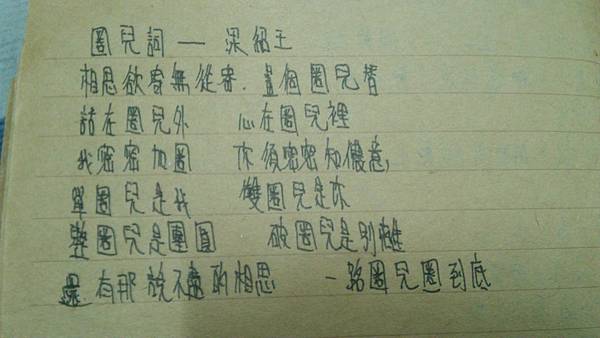 圈兒詞 — 梁紹王
相思欲寄無從寄．畫個圈兒替
話在圈兒外 心在圈兒裡
我密密加圈 你須密密知儂意，
單圈兒是我 雙圈兒是你
整圈兒是團圓 破圈兒是別離
還有那說不盡的相思 一路圈兒圈到底